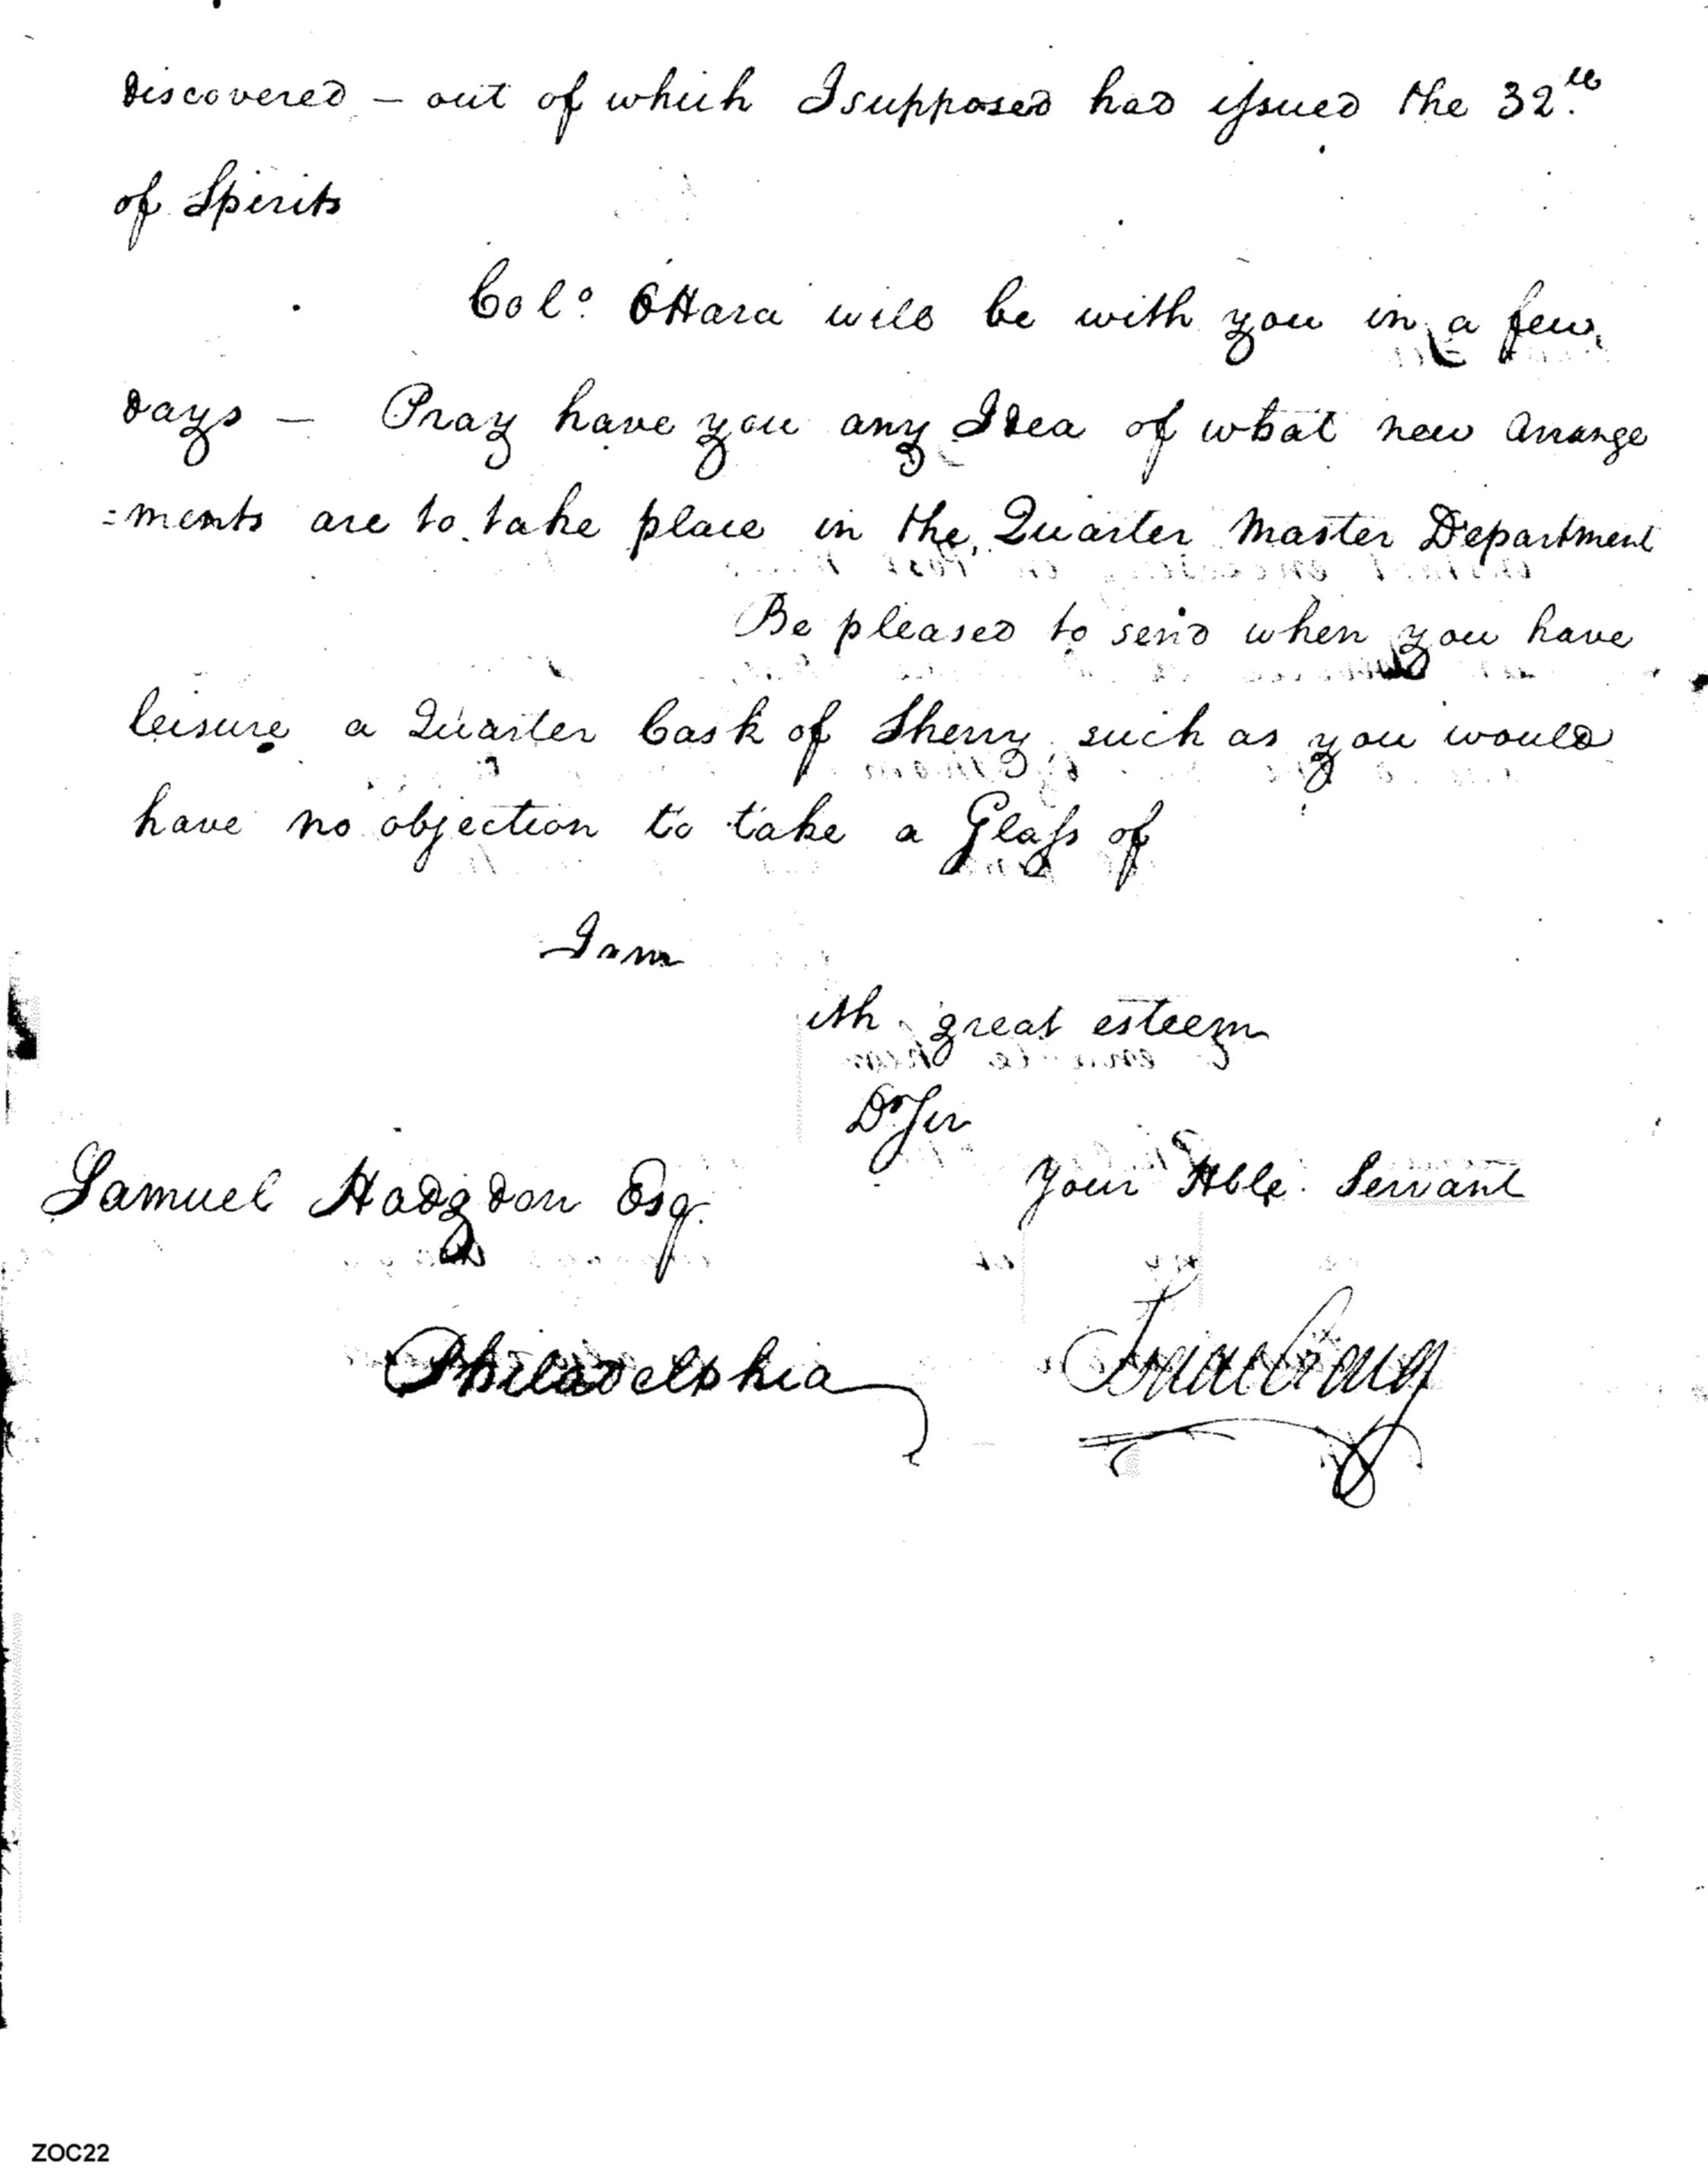 discovered – out of which I supposed had issued the 32.
of Spirits
Colo. OHara will be with you in a few
days – Pray have you any Idea of what new Arrange
=ments are to take place in the Quarter Master Department
Be pleased to send when you have
leisure a Quarter Cask of Sherry such as you would
have no objection to take a Glass of
I am
ith great esteem
Dr Sir
Your Hble. Servant
Samuel Hodgdon Esq.
Philadelphia
Isaac Craig
ZOC22